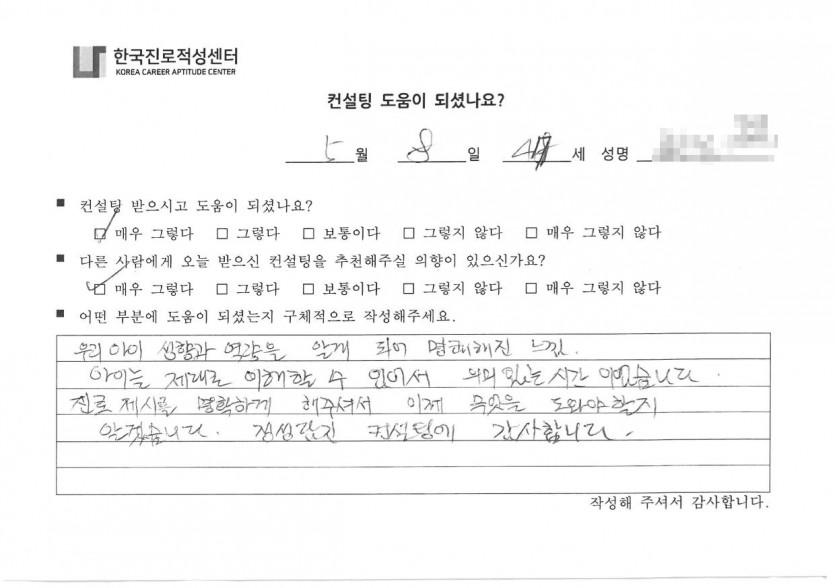 한국진로적성센터
KOREA CAREER APTITUDE CENTER
컨설팅 도움이 되셨나요?
5 월 8 일 47 세 성명
■ 컨설팅 받으시고 도움이 되셨나요?
□ 매우 그렇다 □ 그렇다 □ 보통이다 □ 그렇지 않다 □ 매우 그렇지 않다
■ 다른 사람에게 오늘 받으신 컨설팅을 추천해주실 의향이 있으신가요?
□ 매우 그렇다 □ 그렇다 □ 보통이다 □ 그렇지 않다 □ 매우 그렇지 않다
■ 어떤 부분에 도움이 되셨는지 구체적으로 작성해주세요.
우리 아이 성향과 역량을 알게 되어 명쾌해진 느낌.
아이를 제대로 이해할 수 있어서 의미 있는 시간 이었습니다.
진로 제시를 명확하게 해주셔서 이제 무엇을 도와야 할지
알겠습니다. 정성값진 컨설팅에 감사합니다.
작성해 주셔서 감사합니다.